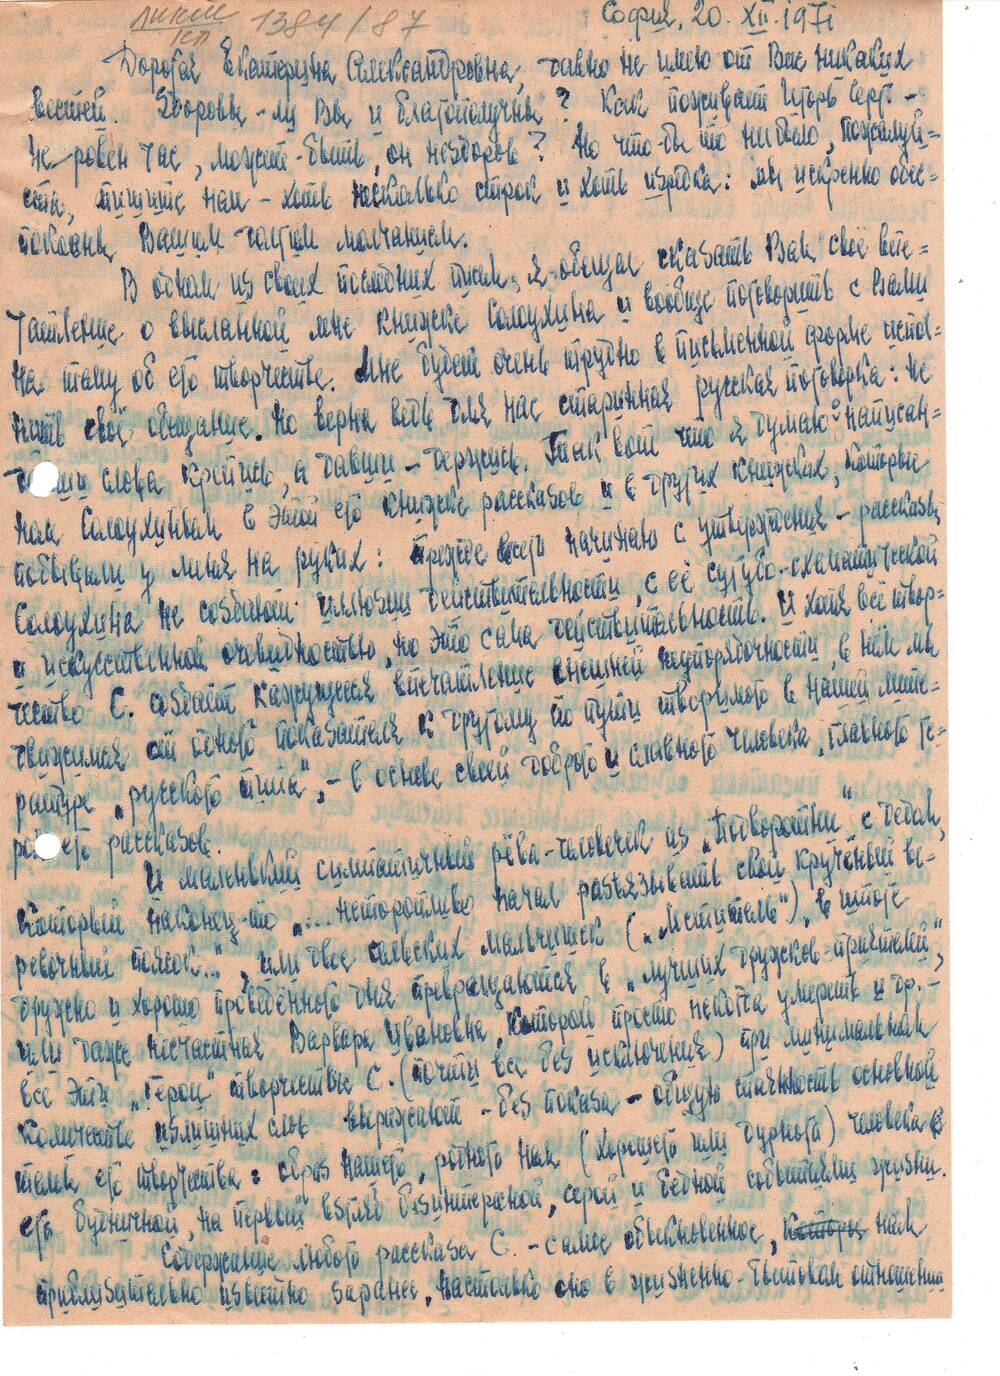 ЛИКМ
КП 1384/87
София, 20. XII. 1971
Дорогая Екатерина Александровна, давно не имею от Вас никаких
вестей. Здоровы-ли Вы и благополучны? Как поживает Игорь Серг. –
не ровен час, может-быть, он нездоров? Но что-бы то ни было, пожалуй=
ста, пишите нам – хоть несколько строк и хоть изредка: мы искренно обес=
покоены Вашим долгим молчанием.
В одном из своих последних писем, я обещал сказать Вам своё впе=
чатление о высланной мне книжке Солоухина и вообще поговорить с Вами
на тему об его творчестве. Мне будет очень трудно в письменной форме испол=
нить своё обещание. Но верна ведь для нас старинная русская поговорка: не
давши слова крепись, а давши – держись. Так вот что я думаю о написан=
ном Солоухиным в этой его книжке рассказов и в других книжках, которые
побывали у меня на руках: прежде всего начинаю с утверждения – рассказы
Солоухина не создают иллюзии действительности, с её сугубо-схематической
и искусственной очевидностью, но это сама действительность. И хотя всё твор=
чество С. создаёт кажущееся впечатление внешней неупорядочности, в нём мы
движимся от одного показателя к другому по пути творимого в нашей лите=
ратуре „русского типа", – в основе своей доброго и славного человека, главного ге=
роя его рассказов.
И маленький симпатичный рёва-человечек из „Подворотни" с дедом,
который наконец-то „... неторопливо начал развязывать свой кручёный ве=
ревочный поясок...", или двое сельских мальчишек („Мститель"), в итоге
дружно и хорошо проведённого дня превращаются в „лучших дружков-приятелей",
или даже несчастная Варвара Ивановна, которой просто некогда умереть и др. –
все эти „герои" творчества С. (почти все без исключения) при минимальном
количестве излишних слов выражают – без показа – общую сложность основной
темы его творчества: образ нашего, родного нам (хорошего или дурного) человека с
его будничной, на первый взгляд безинтересной, серой и бедной событиями жизни.
Содержание любого рассказа С. – самое обыкновенное, нам
приблизительно известно заранее, настолько оно в жизненно-бытовом отношении